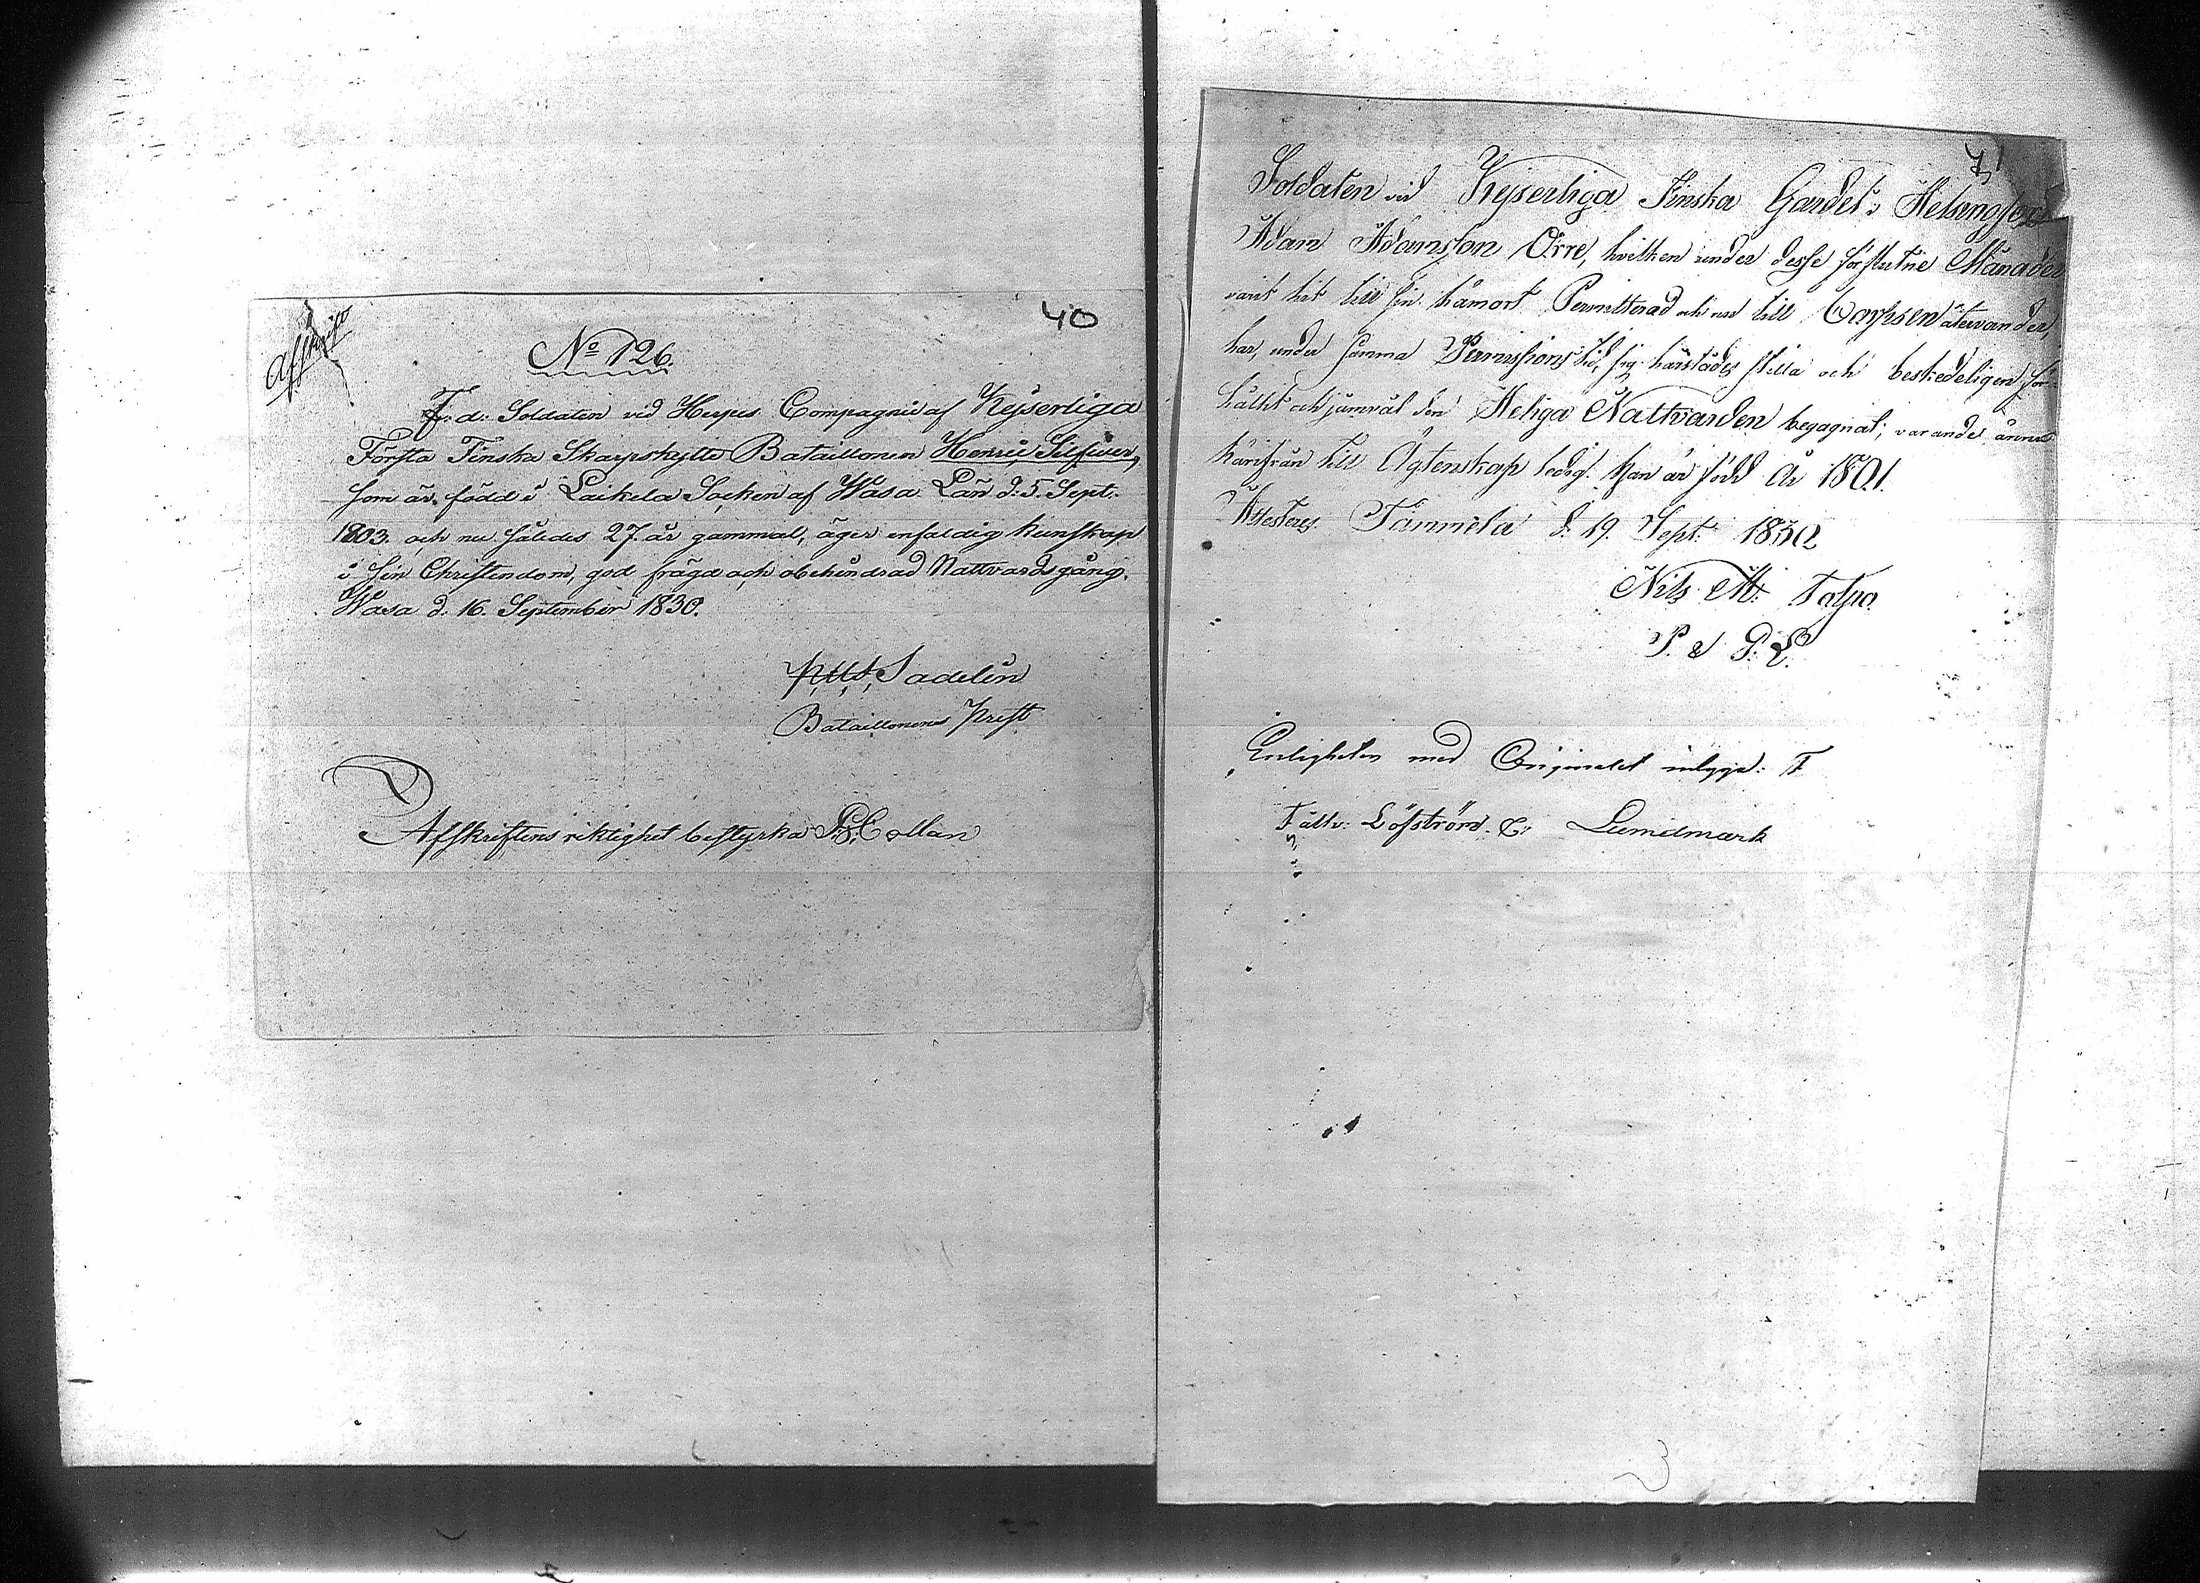 Afskrift
40
No 126.
F. d. Soldaten vid Compagnie af Kejserliga
Första Finska Skarpskytte Bataillonen Henric Silfwer,
som är född i Laihela Socken af Wasa Län d: 5. Sept.
1803. och nu således 27. år gammal, äger enfaldig kunskap
i sin Christendom, god frägd och obehindrad Nattvardsgång.
Wasa d. 16. September 1830.
Sadelin
Bataillonens Prest
Afskriftens riktighet bestyrka Collan
Soldaten vid Kejserliga Finska Gardet i Helsingfors
Adam Adamsson Orre, hvilken under desse förflutne Månader
varit hit till sin hämort Permitterad och nu till Corpsen återvänder,
har, under samma Permissions tid, sig härstädes stilla och beskedeligen för-
hållit och jämväl den Heliga Nattvarden begagnat; varande ännu
härifrån till Ägtenskap ledig. Han är född År 1801.
Attesteras Tammela d. 19. Sept. 1830
Nils M.
Enligheten med Originalet intyga:
Fältv: Löfström. Lundmark